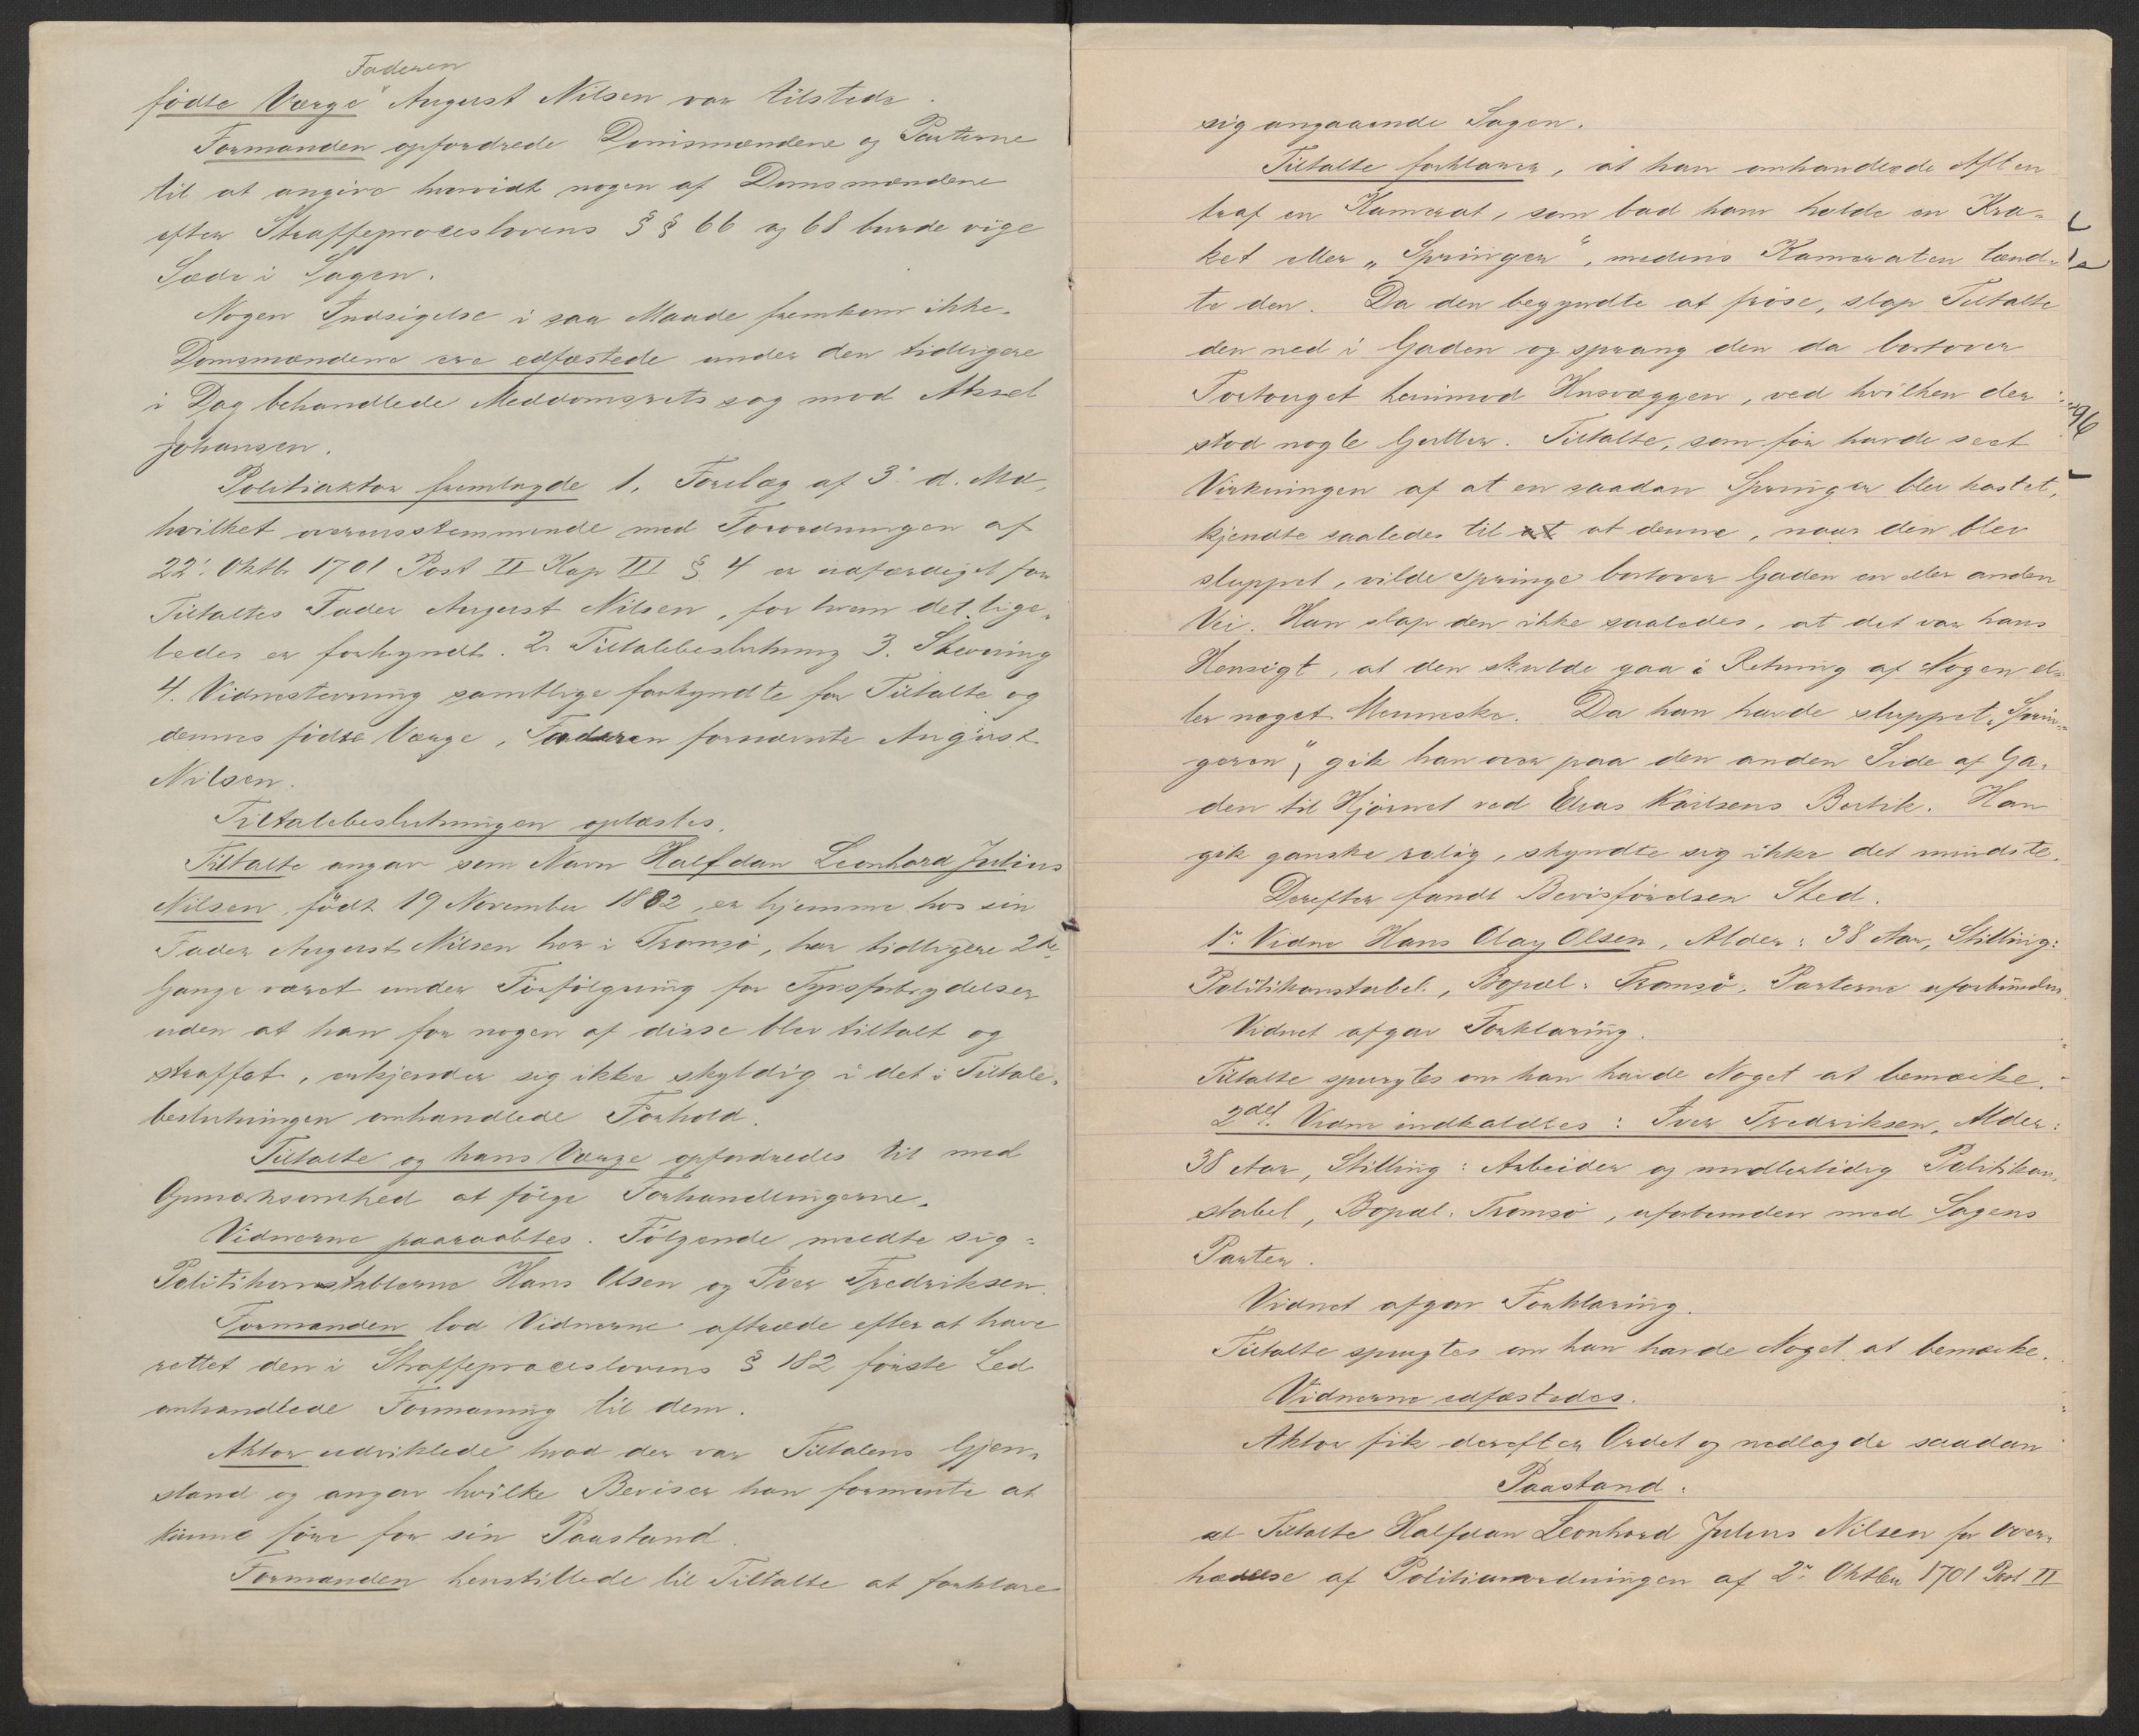 Faderen
fødte Værge August Nilsen var tilstede.
Formanden opfordrede Domsmændene og Parterne
til at angive hvorvidt nogen af Domsmændene
efter Straffeproceslovens §§ 66 og 68 burde vige
Sæde i Sagen.
Nogen Indsigelse i saa Maade fremkom ikke.
Domsmændene ere edfæstede under den tidligere
i Dag behandlede Meddomsretssag mod Aksel
Johansen.
Politiaktor fremlagde 1, Forelæg af 3' d. Md,
hvilket overensstemmende med Forordningen af
22': Oktbr 1701 Post II Kap III § 4 er udfærdiget for
Tiltaltes Fader August Nilsen, for hvem det lige-
ledes er forkyndt. 2. Tiltalebeslutning 3. Stevning
4. Vidnestevning samtlige forkyndte for Tiltalte og
dennes fødte Værge, Faderen fornævnte August
Nilsen.
Tiltalebeslutningen oplæstes.
Tiltalte angav som Navn Halfdan Leonhard Julius
Nilsen, født 19 November 1882, er hjemme hos sin
Fader August Nilsen her i Tromsø, har tidligere 2de
Gange været under Forfølgning for Tyvsforbrydelser
uden at han for nogen af disse blev tiltalt og
straffet, erkjender sig ikke skyldig i det i Tiltale-
beslutningen omhandlede Forhold.
Tiltalte og hans Værge opfordredes til med
Opmærksomhed at følge Forhandlingerne.
Vidnerne paaraabtes. Følgende meldte sig:
Politikonstablerne Hans Olsen og Iver Fredriksen.
Formanden lod Vidnerne aftræde efter at have
rettet den i Straffeproceslovens § 182 første Led
omhandlede Formaning til dem.
Aktor udviklede hvad der var Tiltalens Gjen-
stand og angav hvilke Beviser han formente at
kunne føre for sin Paastand.
Formanden henstillede til Tiltalte at forklare
sig angaaende Sagen.
Tiltalte forklarer, at han omhandlede Aften
traf en Kamerat, som bad ham holde en Kra-
ket eller „Springer“, medens Kameraten tænd-
te den. Da den begyndte at frøse, slap Tiltalte
den ned i Gaden og sprang den da bortover
Fortouget henimod Husvæggen, ved hvilken der
stod nogle Gutter. Tiltalte, som før havde seet
Virkningen af at en saadan Springer blev kastet,
kjendte saaledes til at at denne, naar den blev
sluppet, vilde springe bortover Gaden en eller anden
Vei. Han slap den ikke saaledes, at det var hans
Hensigt, at den skulde gaa i Retning af Nogen el-
ler noget Menneske. Da han havde sluppet „Sprin-
geren“, gik han over paa den anden Side af Ga-
den til Hjørnet ved Butik. Han
gik ganske rolig, skyndte sig ikke det mindste.
Derefter fandt Bevisførelsen Sted.
1' Vidne Hans Olay Olsen, Alder: 38 Aar, Stilling:
Politikonstabel, Bopæl: Tromsø, Parterne uforbunden.
Vidnet afgav Forklaring.
Tiltalte spurgtes om han havde Noget at bemærke.
2det Vidne indkaldtes: Iver Fredriksen, Alder:
38 Aar, Stilling: Arbeider og midlertidig Politikon-
stabel, Bopæl: Tromsø, uforbunden med Sagens
Parter.
Vidnet afgav Forklaring.
Tiltalte spurgtes om han havde Noget at bemærke.
Vidnerne edfæstedes.
Aktor fik derefter Ordet og nedlagde saadan
Paastand:
at Tiltalte Halfdan Leonhard Julius Nilsen for Over-
trædelse af Politianordningen af 2': Oktbr 1701 Post II